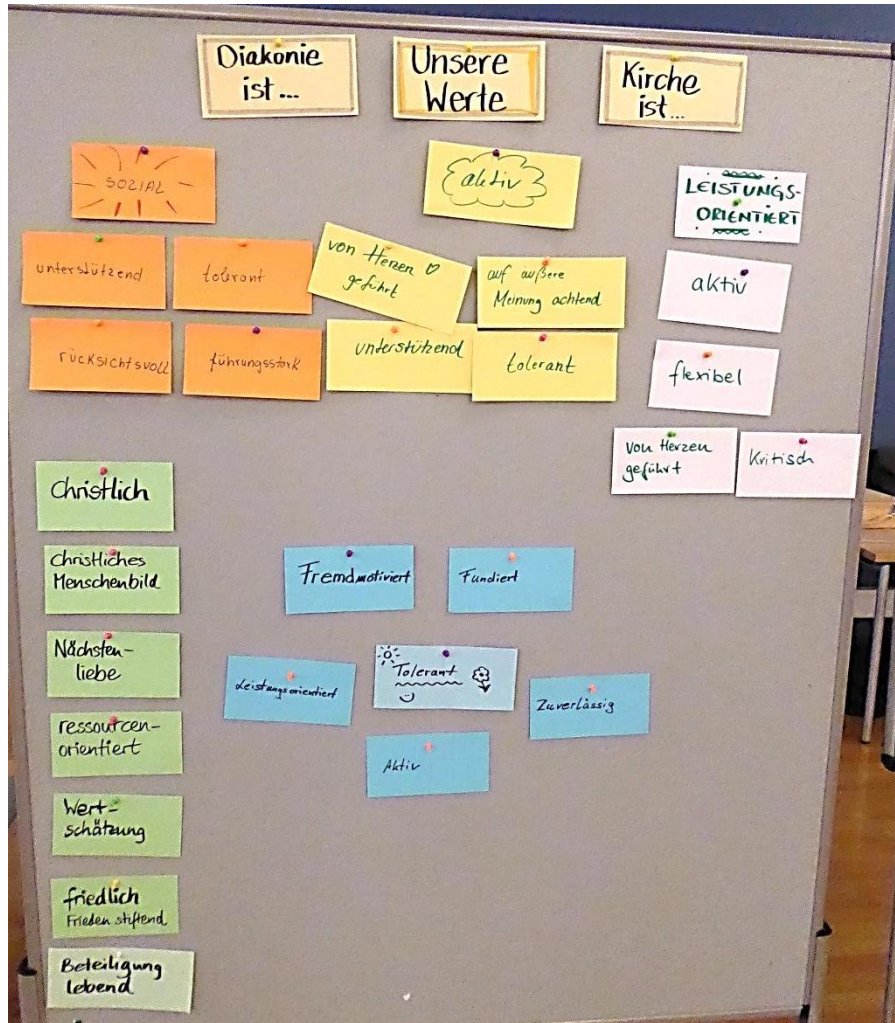 Diakonie
ist...
Unsere
Werte
Kirche
ist...
SOZIAL
unterstützend
tolerant
rücksichtsvoll
führungsstark
aktiv
von Herzen ♡
geführt
auf äußere
Meinung achtend
unterstützend
tolerant
LEISTUNGS-
ORIENTIERT
aktiv
flexibel
von Herzen
geführt
Kritisch
Christlich
Christliches
Menschenbild
Nächsten-
liebe
ressourcen-
orientiert
Wert-
schätzung
friedlich
Frieden stiftend
Beteiligung
lebend
Fremdmotiviert
Fundiert
Leistungsorientiert
Tolerant
Zuverlässig
Aktiv